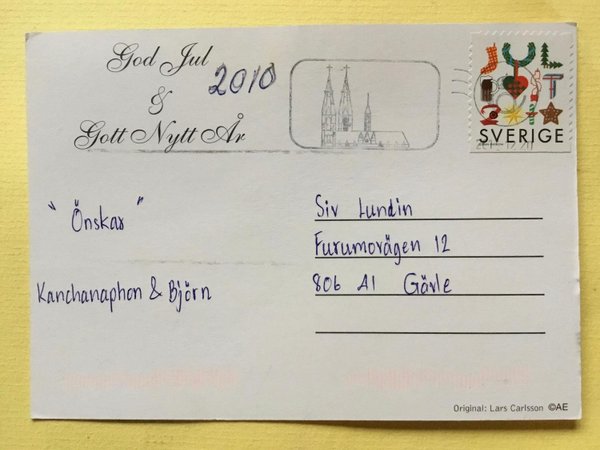 God Jul
&
Gott Nytt År
2010
JUL
SVERIGE
" Önskar "
Kanchanaphon & Björn
Siv Lundin
Furumovägen 12
806 41 Gävle
Original: Lars Carlsson ©AE